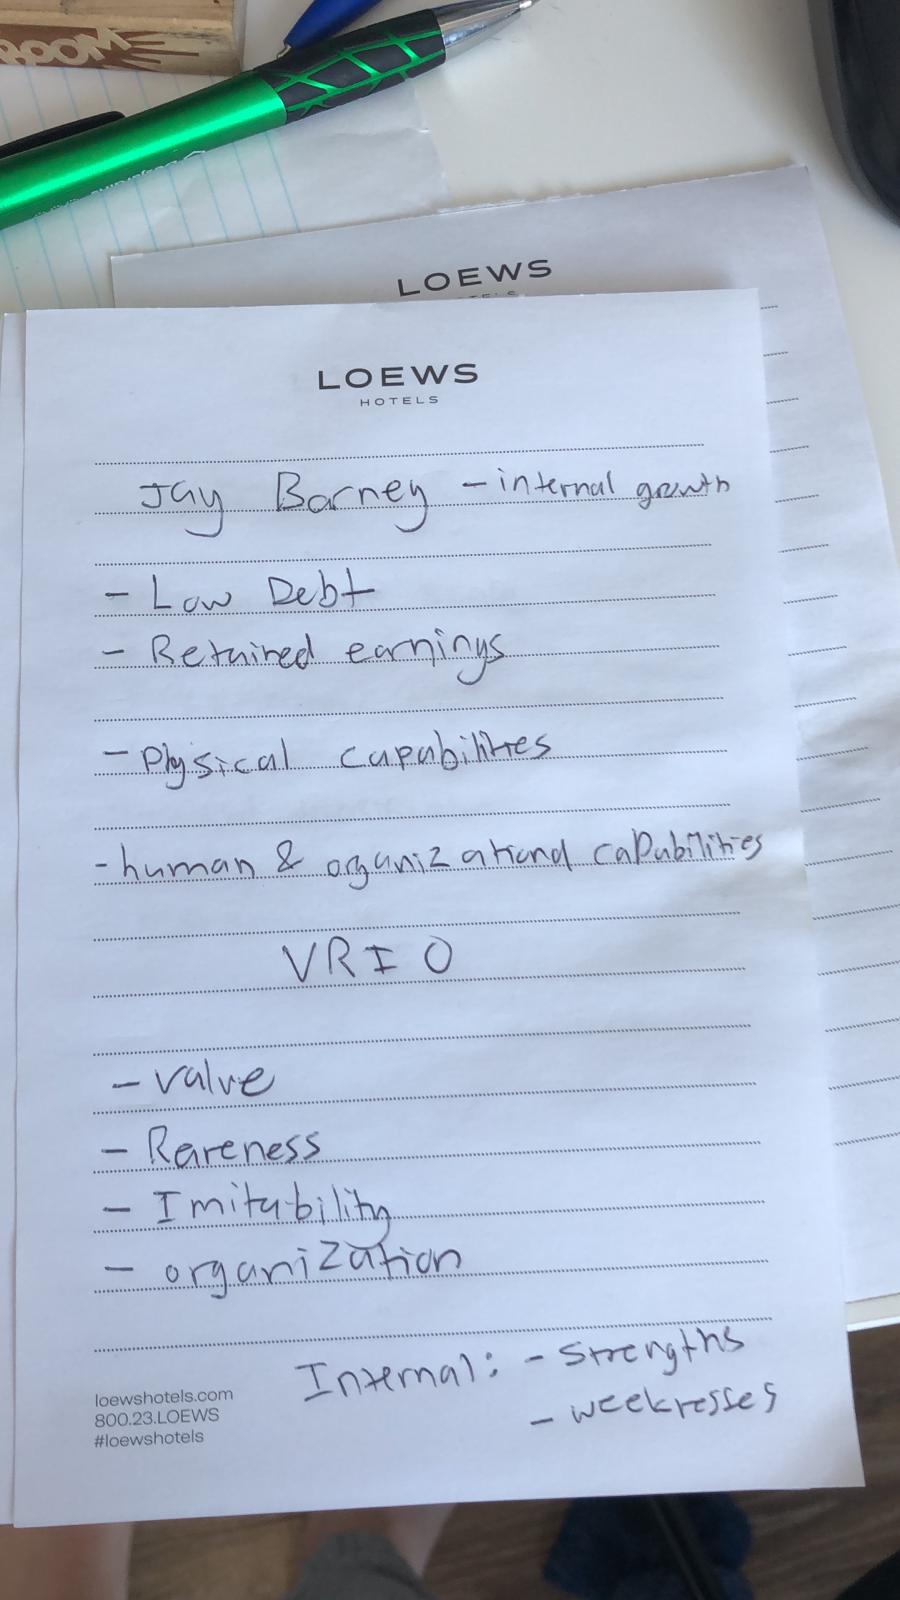 ROOM
LOEWS
LOEWS
HOTELS
Jay Barney - internal growth
- Low Debt
- Retained earnings
- Physical capabilities
- human & organizational capabilities
VRIO
- Value
- Rareness
- Imitability
- organization
Internal: - Strengths
- weeknesses
loewshotels.com
800.23.LOEWS
#loewshotels